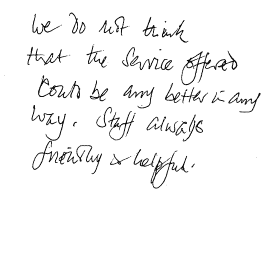 We do not think
that the service offered
could be any better in any
way. Staff always
friendly & helpful.